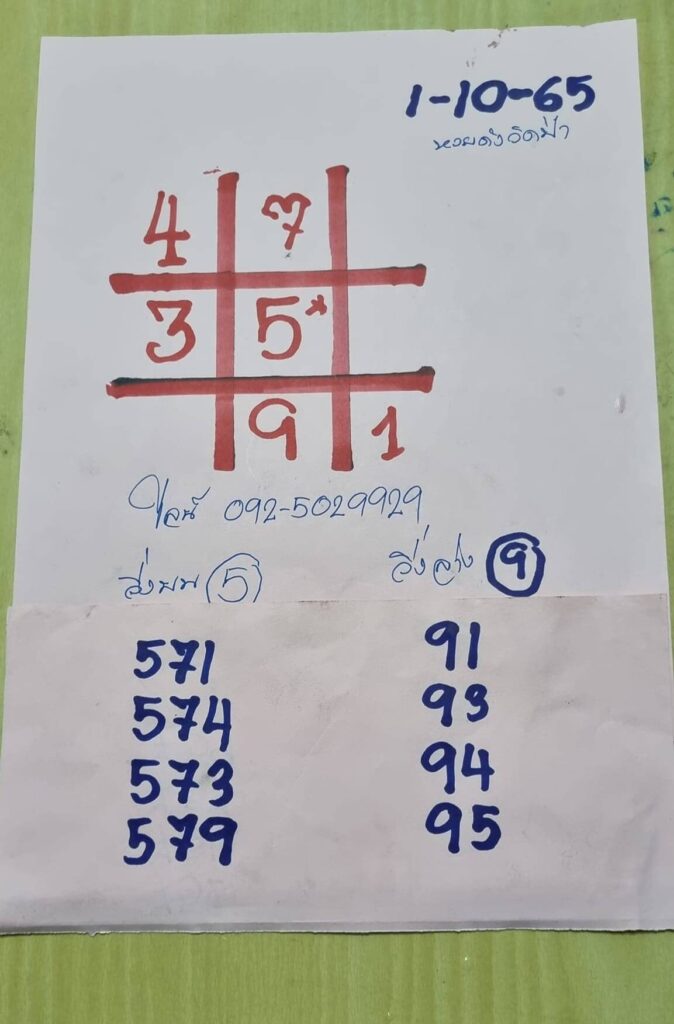 1-10-65
หวยดังอิดป่า
4 7
3 5*
9 1
ไลน์ 092-5029929
วิ่งบน 5
วิ่งล่าง 9
571
574
573
579
91
93
94
95